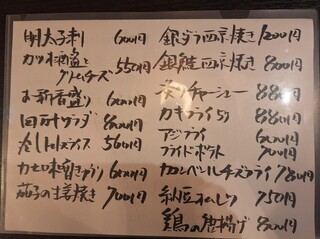 明太子刺 600円
カツオ酒盗と
クリームチーズ 550円
お新香盛り 600円
田村サラダ 800円
冷しトマトスライス 500円
カモロ味噌きゅうり 600円
茄子の生姜焼き 700円
銀ダラ西京焼き 1200円
銀鮭西京焼き 800円
チャーシュー 880円
カキフライ5ヶ 880円
アジフライ 600円
フライドポテト 700円
カマンベールチーズフライ 780円
納豆オムレツ 750円
鶏の唐揚げ 800円